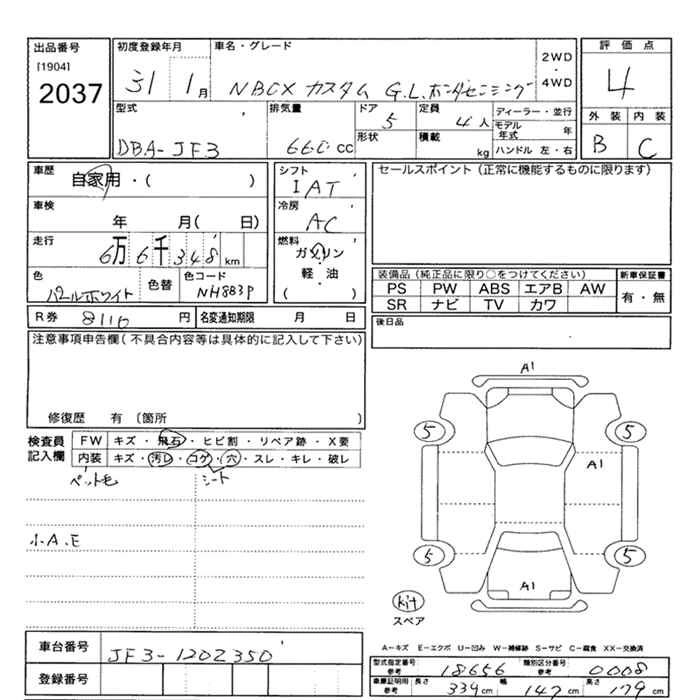 出品番号
[1904]
2037
初度登録年月
31 1月
車名・グレード
NBOX カスタム G.L.ホンダセンシング
2WD
・
4WD
評価点
4
外装 内装
B C
型式
DBA-JF3
排気量
660cc
ドア
5
形状
定員
4人
積載
kg
ディーラー・並行
モデル年式 年
ハンドル 左・右
車歴
自家用・( )
車検
年 月( 日)
走行
6万6千348km
色
パールホワイト
色替
色コード
NH883P
シフト
IAT
冷房
AC
燃料
ガソリン
軽・油
( )
セールスポイント(正常に機能するものに限ります)
装備品(純正品に限り○をつけてください)
新車保証書
PS PW ABS エアB AW
SR ナビ TV カワ
有・無
R券 8110円
名変通知期限 月 日
後日品
注意事項申告欄(不具合内容等は具体的に記入して下さい)
修復歴 有 〔箇所 〕
検査員記入欄
FW キズ・飛石・ヒビ割・リペア跡・X要
内装 キズ・汚レ・コゲ・穴・スレ・キレ・破レ
ペット毛
シート
小A.E
A1
5 5
A1
5 5
A1
kit
スペア
A-キズ E-エクボ U-凹み W-補修跡 S-サビ C-腐食 XX-交換済
車台番号
JF3-1202350
登録番号
型式指定番号 参考
18656
類別区分番号 参考
0008
車庫証明用 参考
長さ 339cm
幅 147cm
高さ 179cm